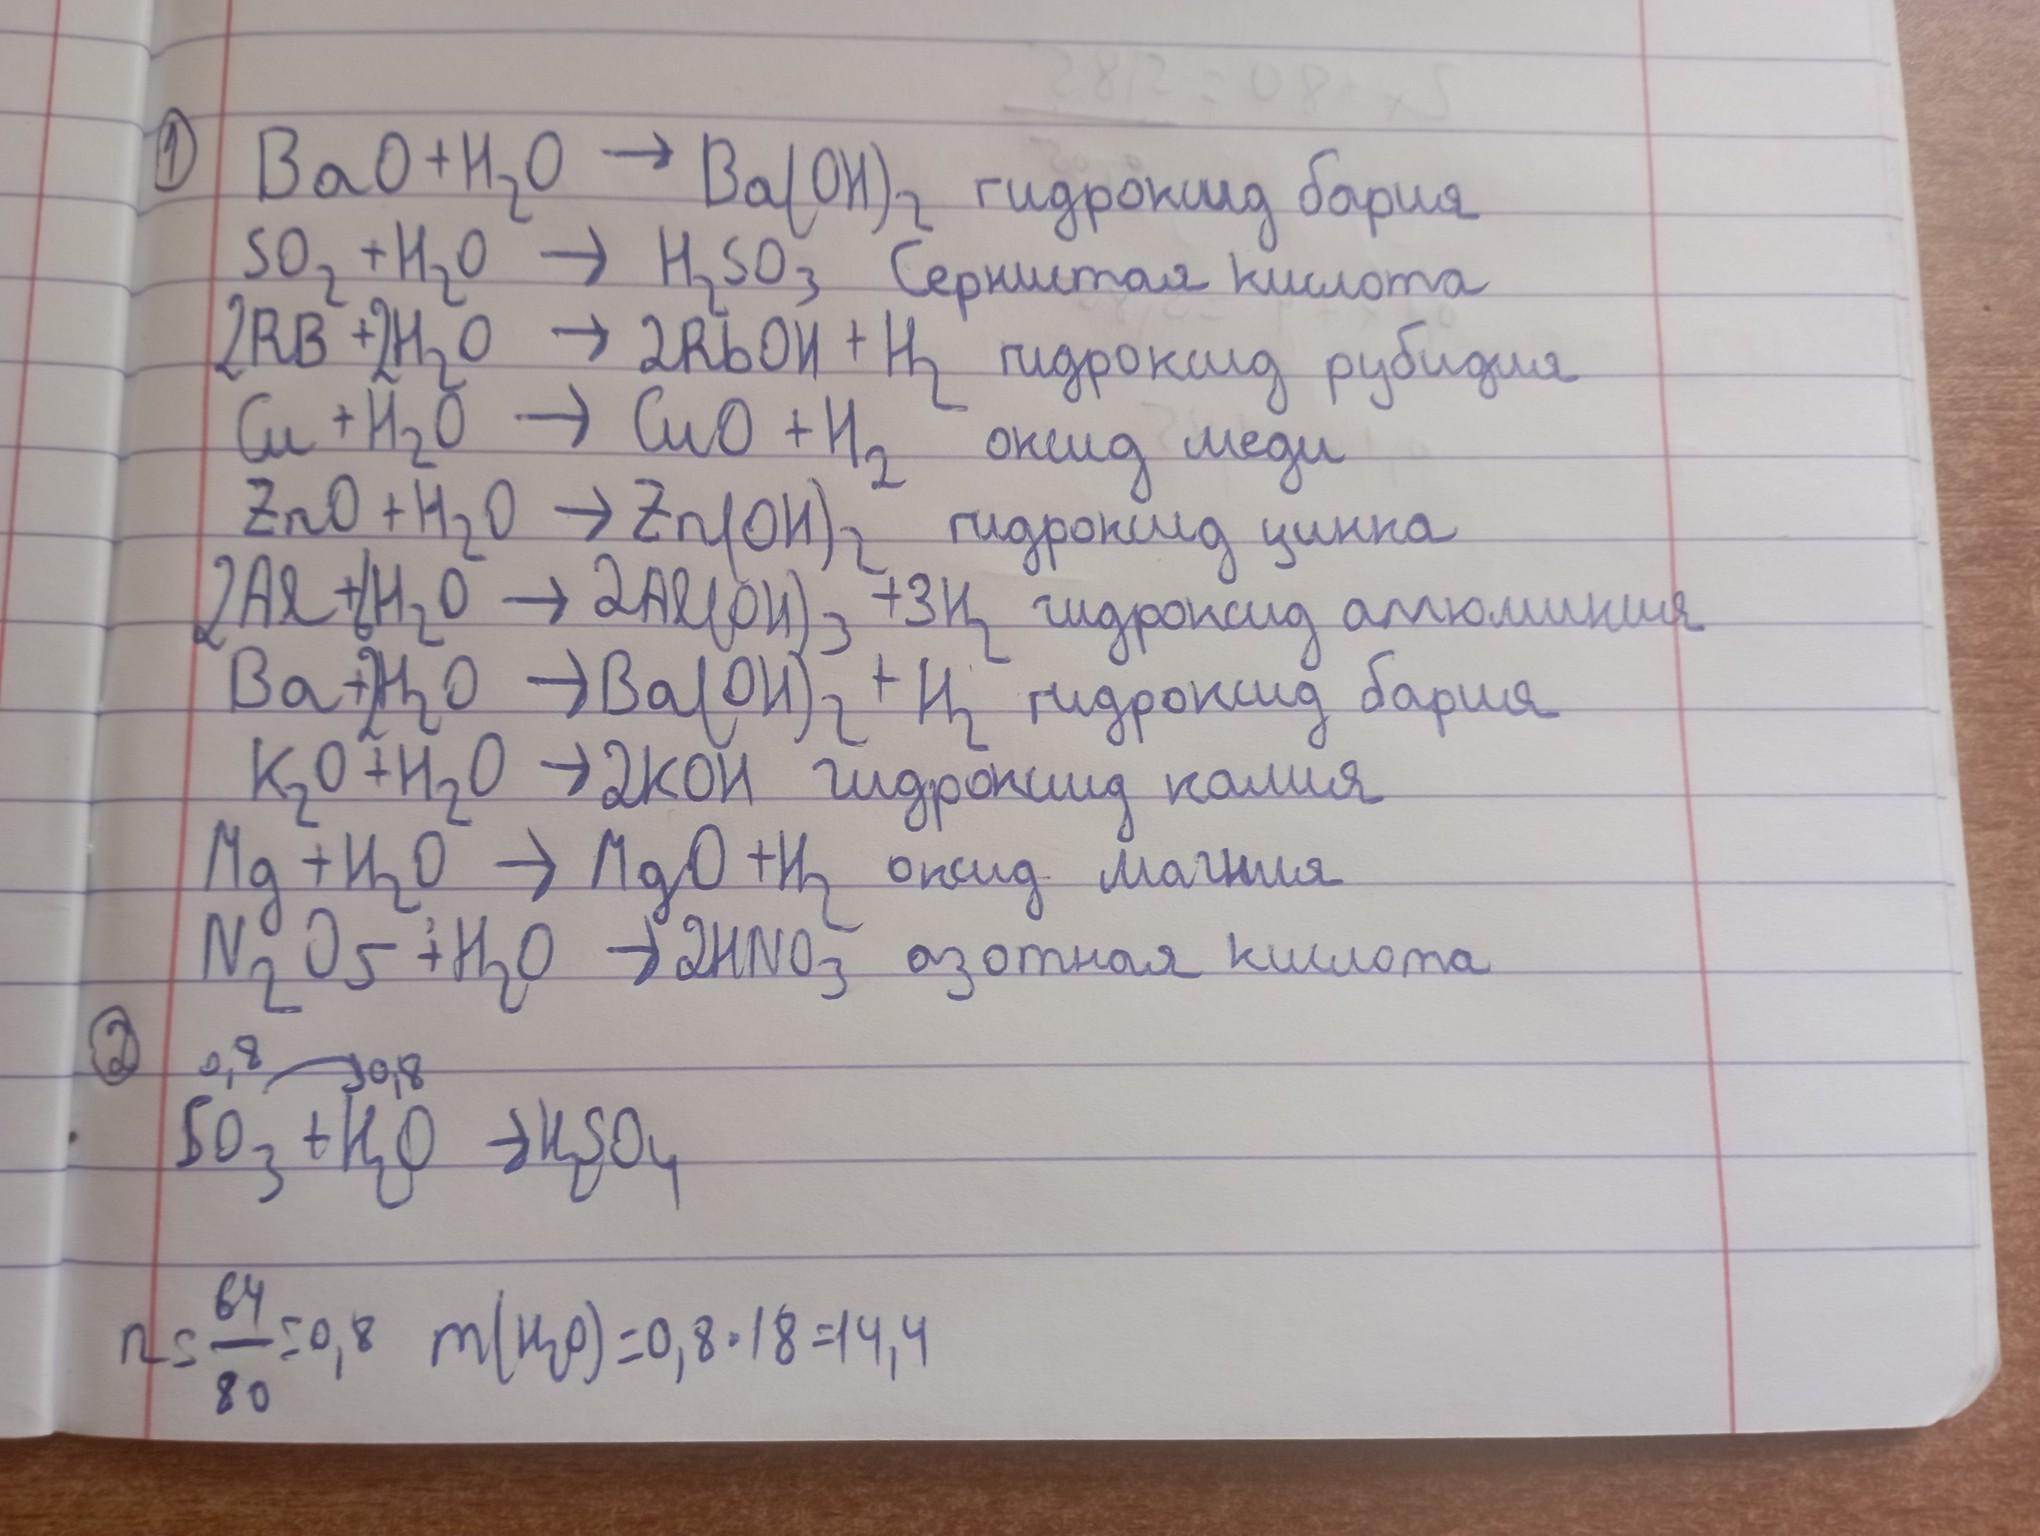 ① BaO + H₂O → Ba(OH)₂ гидроксид бария
SO₂ + H₂O → H₂SO₃ Сернистая кислота
2RB + 2H₂O → 2RbOH + H₂ гидроксид рубидия
Cu + H₂O → CuO + H₂ оксид меди
ZnO + H₂O → Zn(OH)₂ гидроксид цинка
2Al + 6H₂O → 2Al(OH)₃ + 3H₂ гидроксид аллюминия
Ba + 2H₂O → Ba(OH)₂ + H₂ гидроксид бария
K₂O + H₂O → 2KOH гидроксид калия
Mg + H₂O → MgO + H₂ оксид магния
N₂O₅ + H₂O → 2HNO₃ азотная кислота
② 0,8 → 0,8
SO₃ + H₂O → H₂SO₄
n = 64/80 = 0,8 m(H₂O) = 0,8 · 18 = 14,4